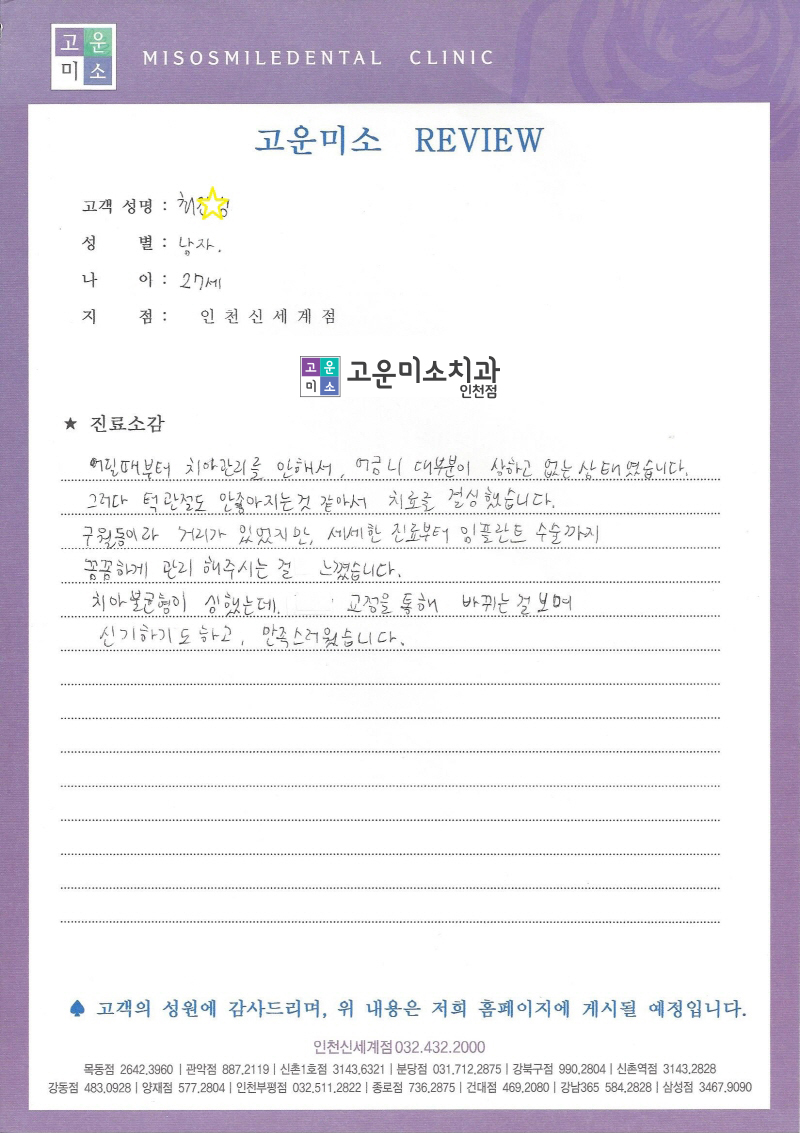 고운
미소
MISOSMILEDENTAL CLINIC
고운미소 REVIEW
고객 성명 : 최
성 별 : 남자.
나 이 : 27세
지 점 : 인천신세계점
고운
미소
고운미소치과
인천점
★ 진료소감
어릴때부터 치아관리를 안해서, 어금니 대부분이 상하고 없는 상태였습니다.
그러다 턱관절도 안좋아지는것 같아서 치료를 결심했습니다.
구월동이라 거리가 있었지만, 세세한 진료부터 임플란트 수술까지
꼼꼼하게 관리 해주시는 걸 느꼈습니다.
치아불균형이 심했는데, 교정을 통해 바뀌는걸 보며
신기하기도 하고, 만족스러웠습니다.
♠ 고객의 성원에 감사드리며, 위 내용은 저희 홈페이지에 게시될 예정입니다.
인천신세계점 032.432.2000
목동점 2642.3960 | 관악점 887.2119 | 신촌1호점 3143.6321 | 분당점 031.712.2875 | 강북구점 990.2804 | 신촌역점 3143.2828
강동점 483.0928 | 양재점 577.2804 | 인천부평점 032.511.2822 | 종로점 736.2875 | 건대점 469.2080 | 강남365 584.2828 | 삼성점 3467.9090